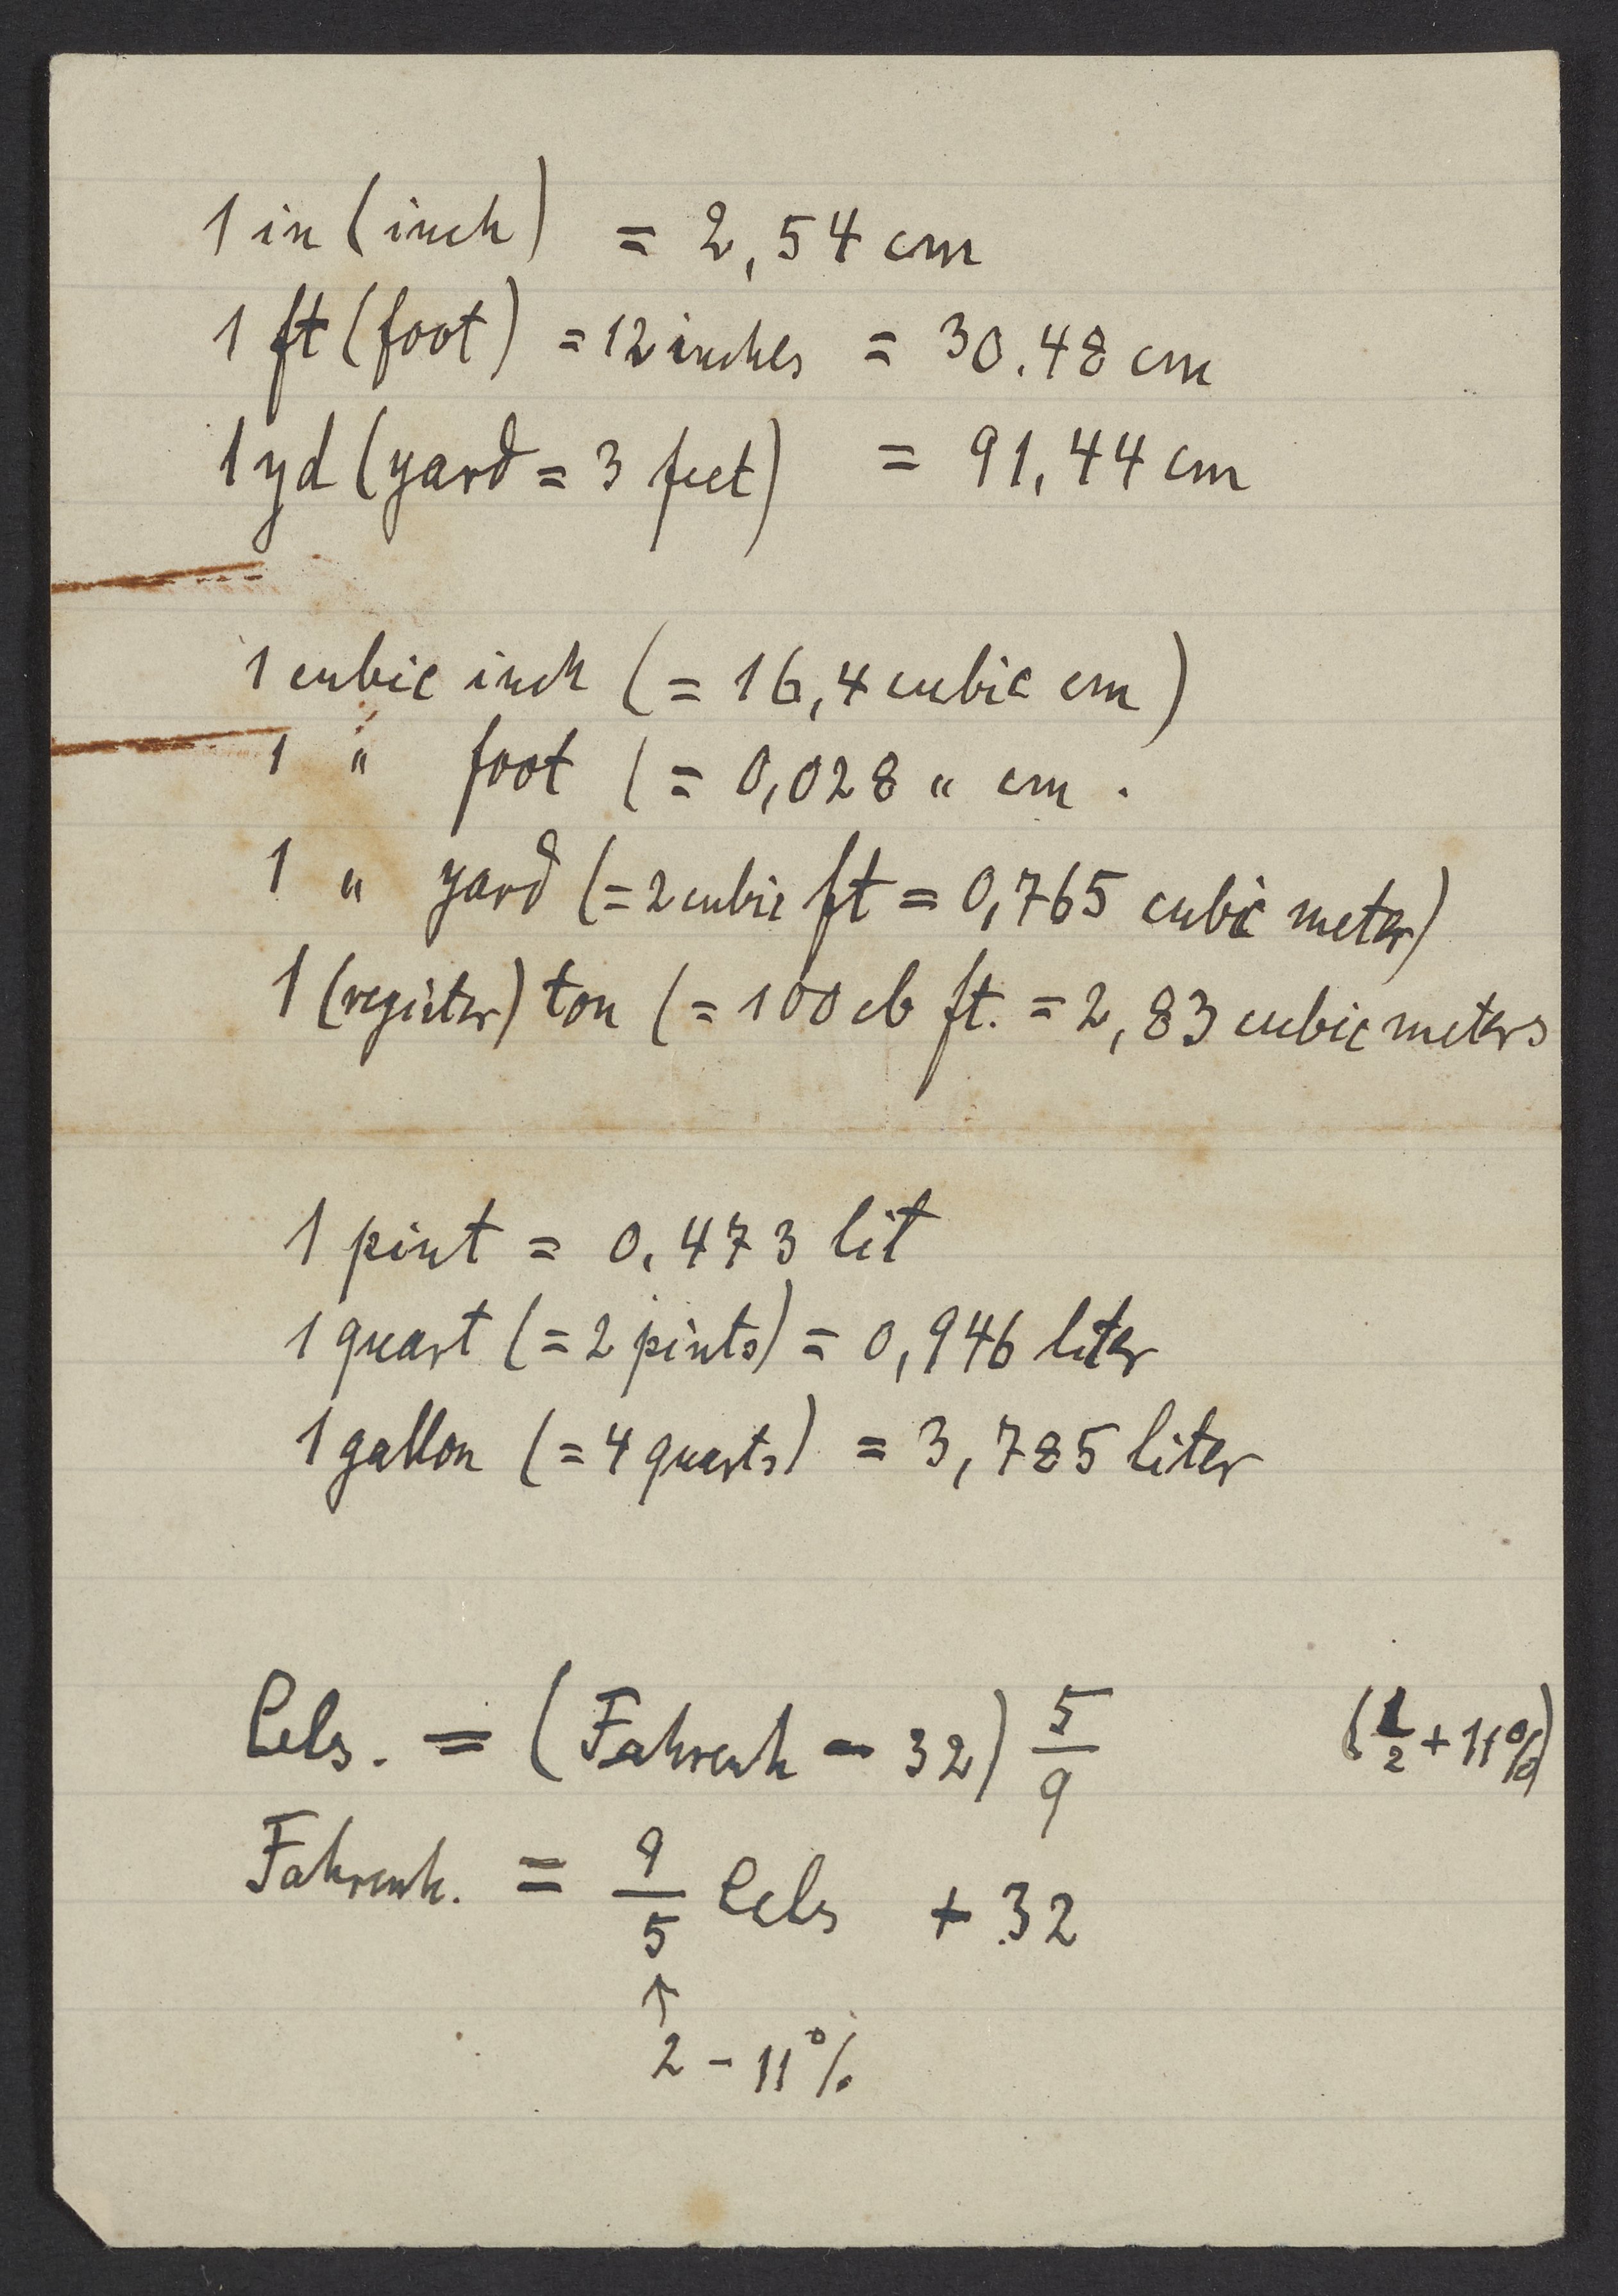 1 in (inch) = 2,54 cm
1 ft (foot) = 12 inches = 30.48 cm
1 yd (yard = 3 feet) = 91,44 cm
1 cubic inch (= 16,4 cubic cm)
1 " foot (= 0,028 " cm .
1 " yard (= 2 cubic ft = 0,765 cubic meter)
1 (register) ton (= 100 cb ft. = 2,83 cubic meters
1 pint = 0.473 lit
1 quart (= 2 pints) = 0,946 liter
1 gallon (= 4 quarts) = 3,785 liter
Cels. = (Fahrenh - 32) 5/9 (1/2 + 11%)
Fahrenh. = 9/5 Cels + 32
↑
2 - 11%